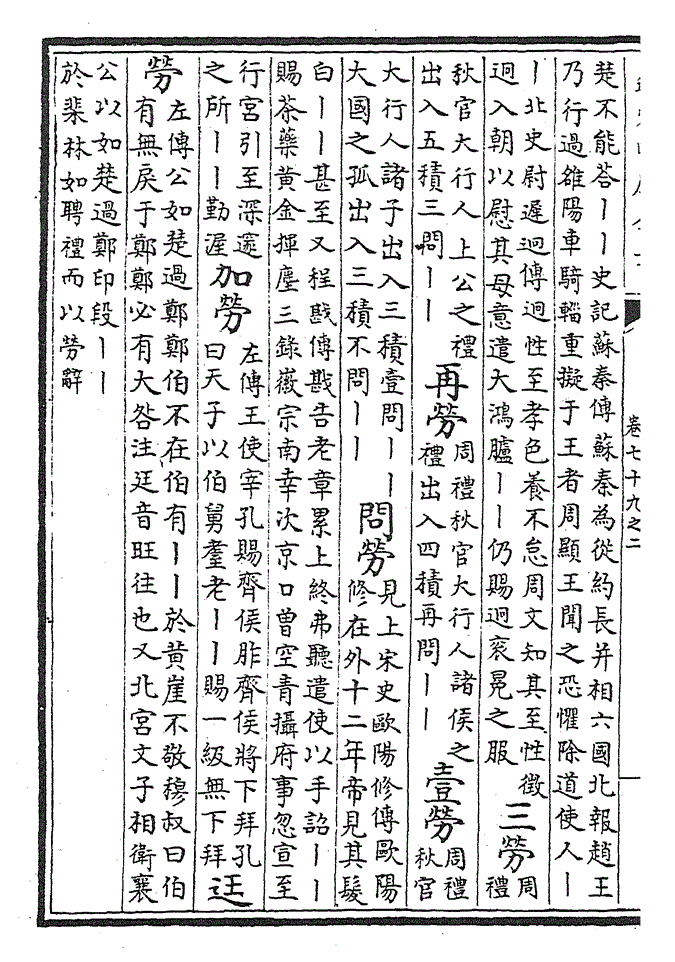 卷七十九之二
楚不能荅丨丨史記蘇秦傳蘇秦為從約長并相六國北報趙王
乃行過雒陽車騎輜重擬于王者周顯王聞之恐懼除道使人丨
丨北史尉遲迥傳迥性至孝色養不怠周文知其至性徵
迥入朝以慰其母意遣大鴻臚丨丨仍賜迥衮冕之服
三勞
周
禮
秋官大行人上公之禮
出入五積三問丨丨
再勞
周禮秋官大行人諸侯之
禮出入四積再問丨丨
壹勞
周禮
秋官
大行人諸子出入三積壹問丨丨
大國之孤出入三積不問丨丨
問勞
見上宋史歐陽修傳歐陽
修在外十二年帝見其髮
白丨丨甚至又程戡傳戡告老章累上終弗聽遣使以手詔丨丨
賜茶藥黄金揮麈三錄徽宗南幸次京口曽空青攝府事忽宣至
行宮引至深邃
之所丨丨勤渥
加勞
左傳王使宰孔賜齊侯胙齊侯將下拜孔
曰天子以伯舅耋老丨丨賜一級無下拜
迋
勞
左傳公如楚過鄭鄭伯不在伯有丨丨於黄崖不敬穆叔曰伯
有無戾于鄭鄭必有大咎注迋音旺往也又北宮文子相衛襄
公以如楚過鄭印段丨丨
於棐林如聘禮而以勞辭